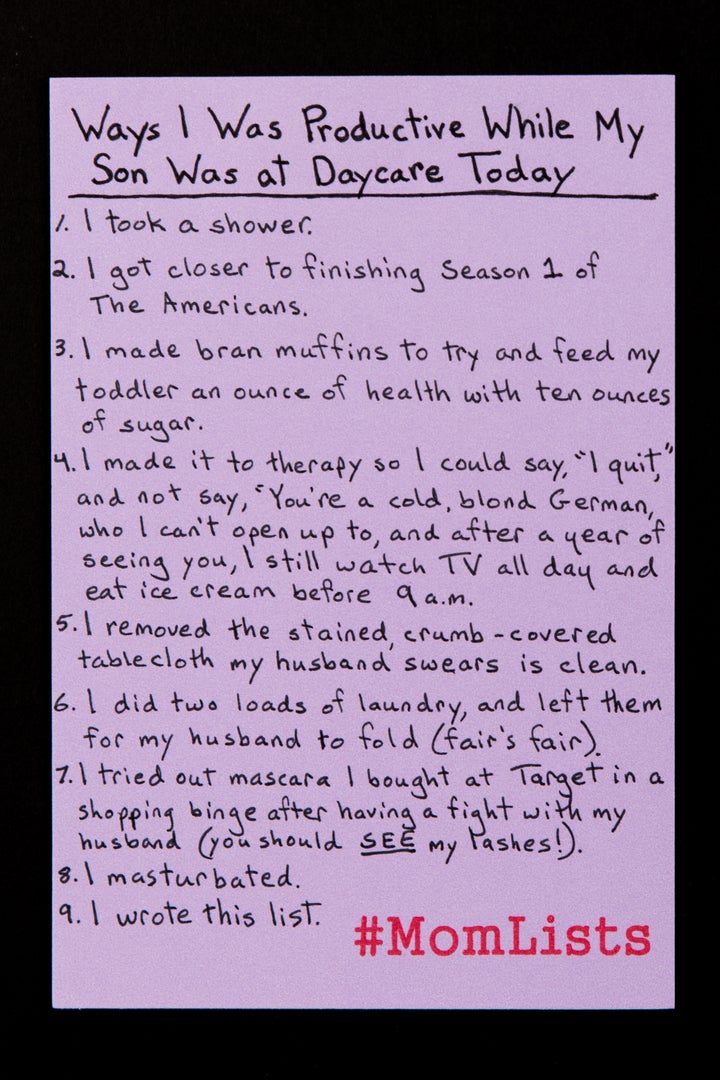 Ways I Was Productive While My
Son Was at Daycare Today
1. I took a shower.
2. I got closer to finishing Season 1 of
The Americans.
3. I made bran muffins to try and feed my
toddler an ounce of health with ten ounces
of sugar.
4. I made it to therapy so I could say, "I quit,"
and not say, "You're a cold, blond German,
who I can't open up to, and after a year of
seeing you, I still watch TV all day and
eat ice cream before 9 a.m.
5. I removed the stained, crumb-covered
tablecloth my husband swears is clean.
6. I did two loads of laundry, and left them
for my husband to fold (fair's fair).
7. I tried out mascara I bought at Target in a
shopping binge after having a fight with my
husband (you should SEE my lashes!).
8. I masturbated.
9. I wrote this list.
#MomLists